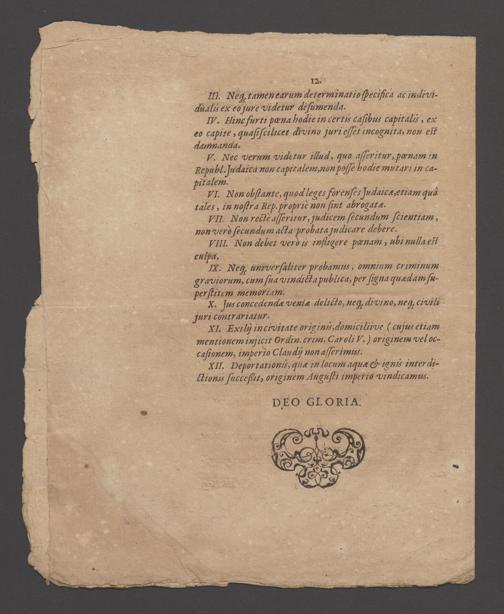 12.
III. Neq; tamen earum determinatio specifica ac indivi-
dualis ex eo jure videtur desumenda.
IV. Hinc furti pœna hodie in certis casibus capitalis, ex
eo capite, quasi scilicet divino juri esset incognita, non est
damnanda.
V. Nec verum videtur illud, quo asseritur, pœnam in
Republ. Judaica non capitalem, non posse hodie mutari in ca-
pitalem.
VI. Non obstante, quod leges forenses Judaicæ, etiam quâ
tales, in nostra Rep. propriè non sint abrogatæ.
VII. Non rectè asseritur, judicem secundum scientiam,
non verò secundum acta probata judicare debere.
VIII. Non debet verò is infligere pœnam, ubi nulla est
culpa.
IX. Neq; universaliter probamus, omnium criminum
graviorum, cum sua vindicta publica, per signa quædam su-
perstitem memoriam.
X. Jus concedendæ veniæ delicto, neq; divino, neq; civili
juri contrariatur.
XI. Exilij in civitate originis, domiciliive (cujus etiam
mentionem injicit Ordin. crim. Caroli V.) originem vel oc-
casionem, imperio Claudij non asserimus.
XII. Deportationis, quæ in locum aquæ & ignis interdi-
ctionis successit, originem Augusti imperio vindicamus.
DEO GLORIA.